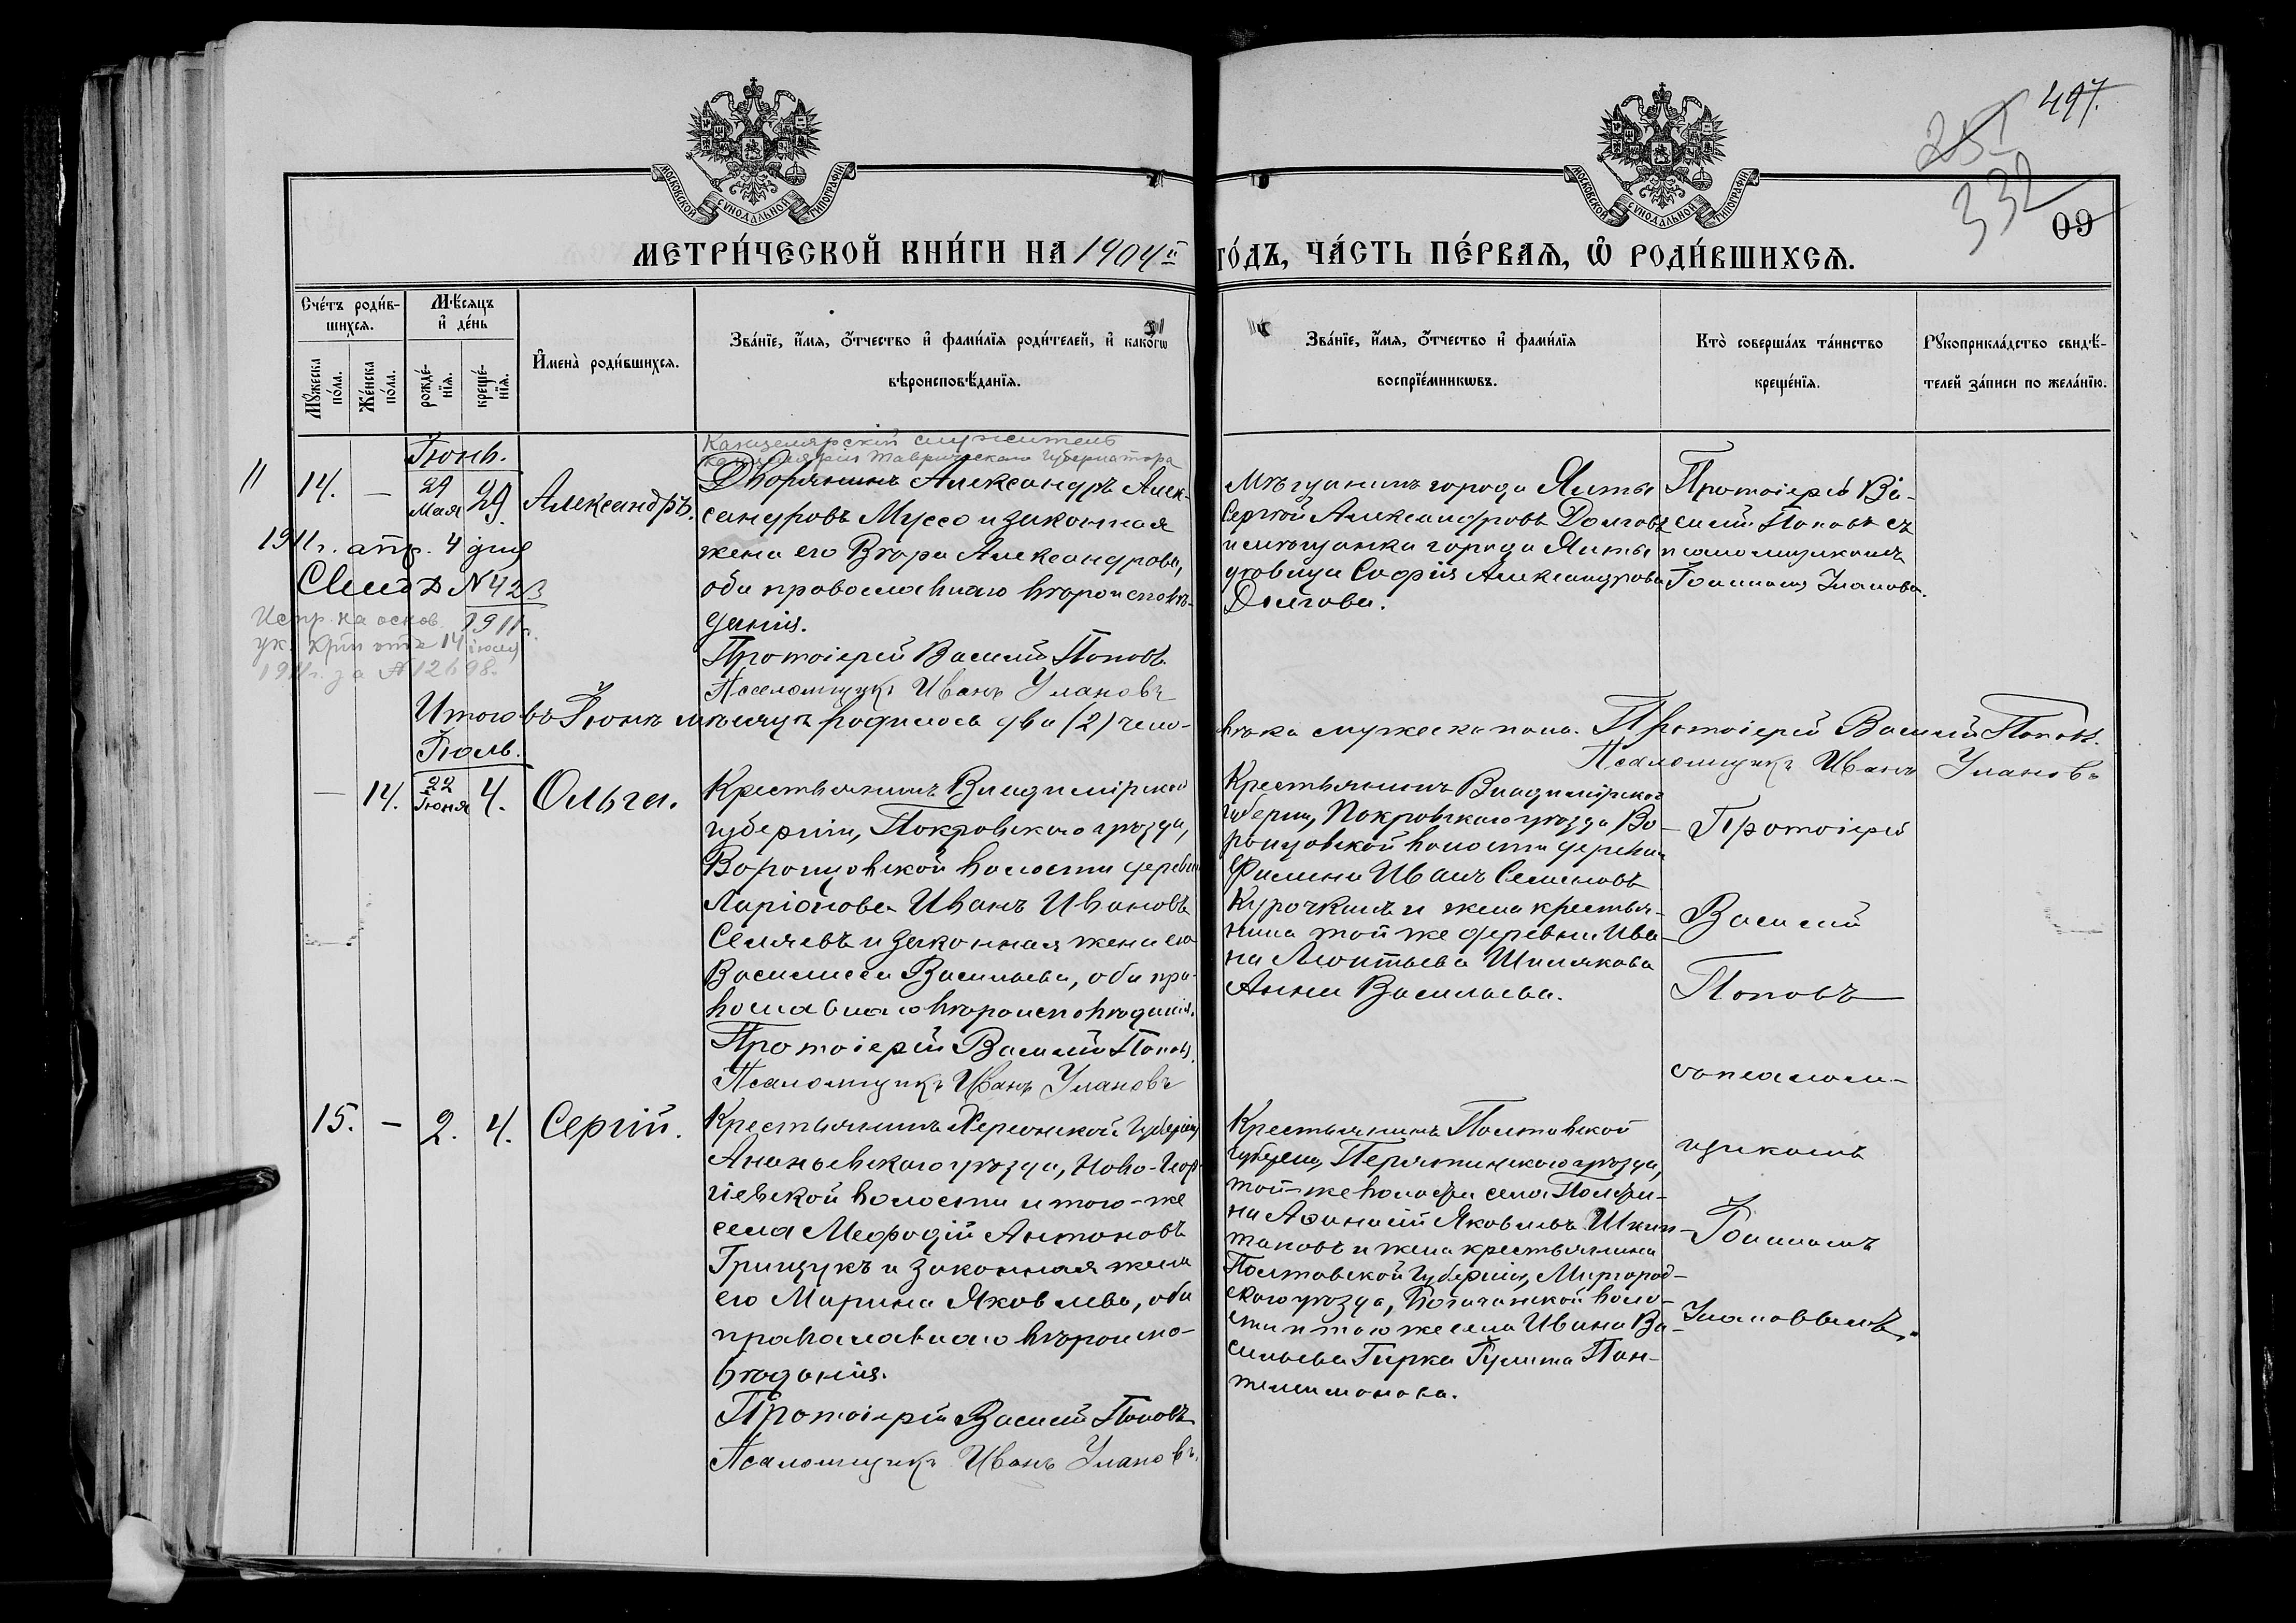 497.
251
332
09
МОСКОВСКОЙ СѴНОДАЛЬНОЙ ТИПОГРАФІИ
МОСКОВСКОЙ СѴНОДАЛЬНОЙ ТИПОГРАФІИ
МЕТРИ́ЧЕСКОЙ КНИ́ГИ НА 1904й ГО́ДЪ, ЧА́СТЬ ПЕ́РВАѦ, Ѽ РОДИ́ВШИХСѦ.
Сче́тъ роди́в-
шихсѧ.
Мꙋ́жеска по́ла.
Же́нска по́ла.
Мѣ́сѧцъ
и҆ де́нь
рожде́-
нїѧ.
креще́-
нїѧ.
И҆мена̀ роди́вшихсѧ.
Зва́нїе, и҆́мѧ, ѻ҆́тчество и҆ фами́лїѧ роди́телей, и҆ како́гѡ
вѣроисповѣ́данїѧ.
Зва́нїе, и҆́мѧ, ѻ҆́тчество и҆ фами́лїѧ
воспрїе́мникѡвъ.
Кто̀ соверша́лъ та́инство
креще́нїѧ.
Рꙋкоприкла́дство свидѣ́-
телей за́писи по жела́нїю.
Іюнь.
Канцелярскій служитель
канцеляріи Таврическаго Губернатора
11
14. — 29 Мая 29. Александръ.
Дворянинъ Александръ Алек-
сандровъ Муссо и законная
жена его Вѣра Александрова,
оба православнаго вѣроисповѣ-
данія.
Протоіерей Василій Поповъ
Псаломщикъ Ивань Улановъ
1911г. апр. 4 дня
№ 423
Испр. на основ. 1911г.
ук. отъ 14 іюля
1911г. за № 12698.
Мѣщанинъ города Ялты
Сергѣй Александровъ Долговъ
и мѣщанка города Ялты
вдовица Софія Александрова
Долгова.
Протоіерей Ва-
силій Поповъ съ
псаломщикомъ
Іоанномъ Улановы.
Итого въ Іюнѣ мѣсяцѣ родилось два (2) чело-
вѣка мужеска пола. Протоіерей Василій Поповъ.
Псаломщикъ Иванъ Улановъ
Іюль.
— 14. 22 Іюня 4. Ольга.
Крестьянинъ Владимірской
губерніи, Покровскаго уѣзда,
Воронцовской волости деревни
Ларіонова Иванъ Ивановъ
Селяевъ и законная жена его
Василисса Васильева, оба пра-
вославнаго вѣроисповѣданія.
Протоіерей Василій Поповъ.
Псаломщикъ Иванъ Улановъ
Крестьянинъ Владимірской
губерніи, Покровскаго уѣзда Во-
ронцовской волости деревни
Филина Иванъ Семеновъ
Курочкинъ и жена крестья-
нина той же деревни Ива-
на Леонтьева Шишкова
Анна Васильева.
Протоіерей
Василій
Поповъ
со псалом-
щикомъ
Іоанномъ
Улановымъ.
15. — 2. 4. Сергій.
Крестьянинъ Херсонской Губерніи
Ананьевскаго уѣзда, Ново-Геор-
гіевской волости и того-же
села Меѳодій Антоновъ
Грищукъ и законная жена
его Марина Яковлева, оба
православнаго вѣроиспо-
вѣданія.
Протоіерей Василій Поповъ
Псаломщикъ Иванъ Улановъ.
Крестьянинъ Полтавской
Губерніи, Пирятинскаго уѣзда,
той-же волости села
Аѳанасій Яковлевъ
и жена крестьянина
Полтавской Губерніи, Миргород-
скаго уѣзда, Богачанской воло-
сти и того же села Ивана Ва-
сильева Гирка Іулита Пан-
телеимонова.